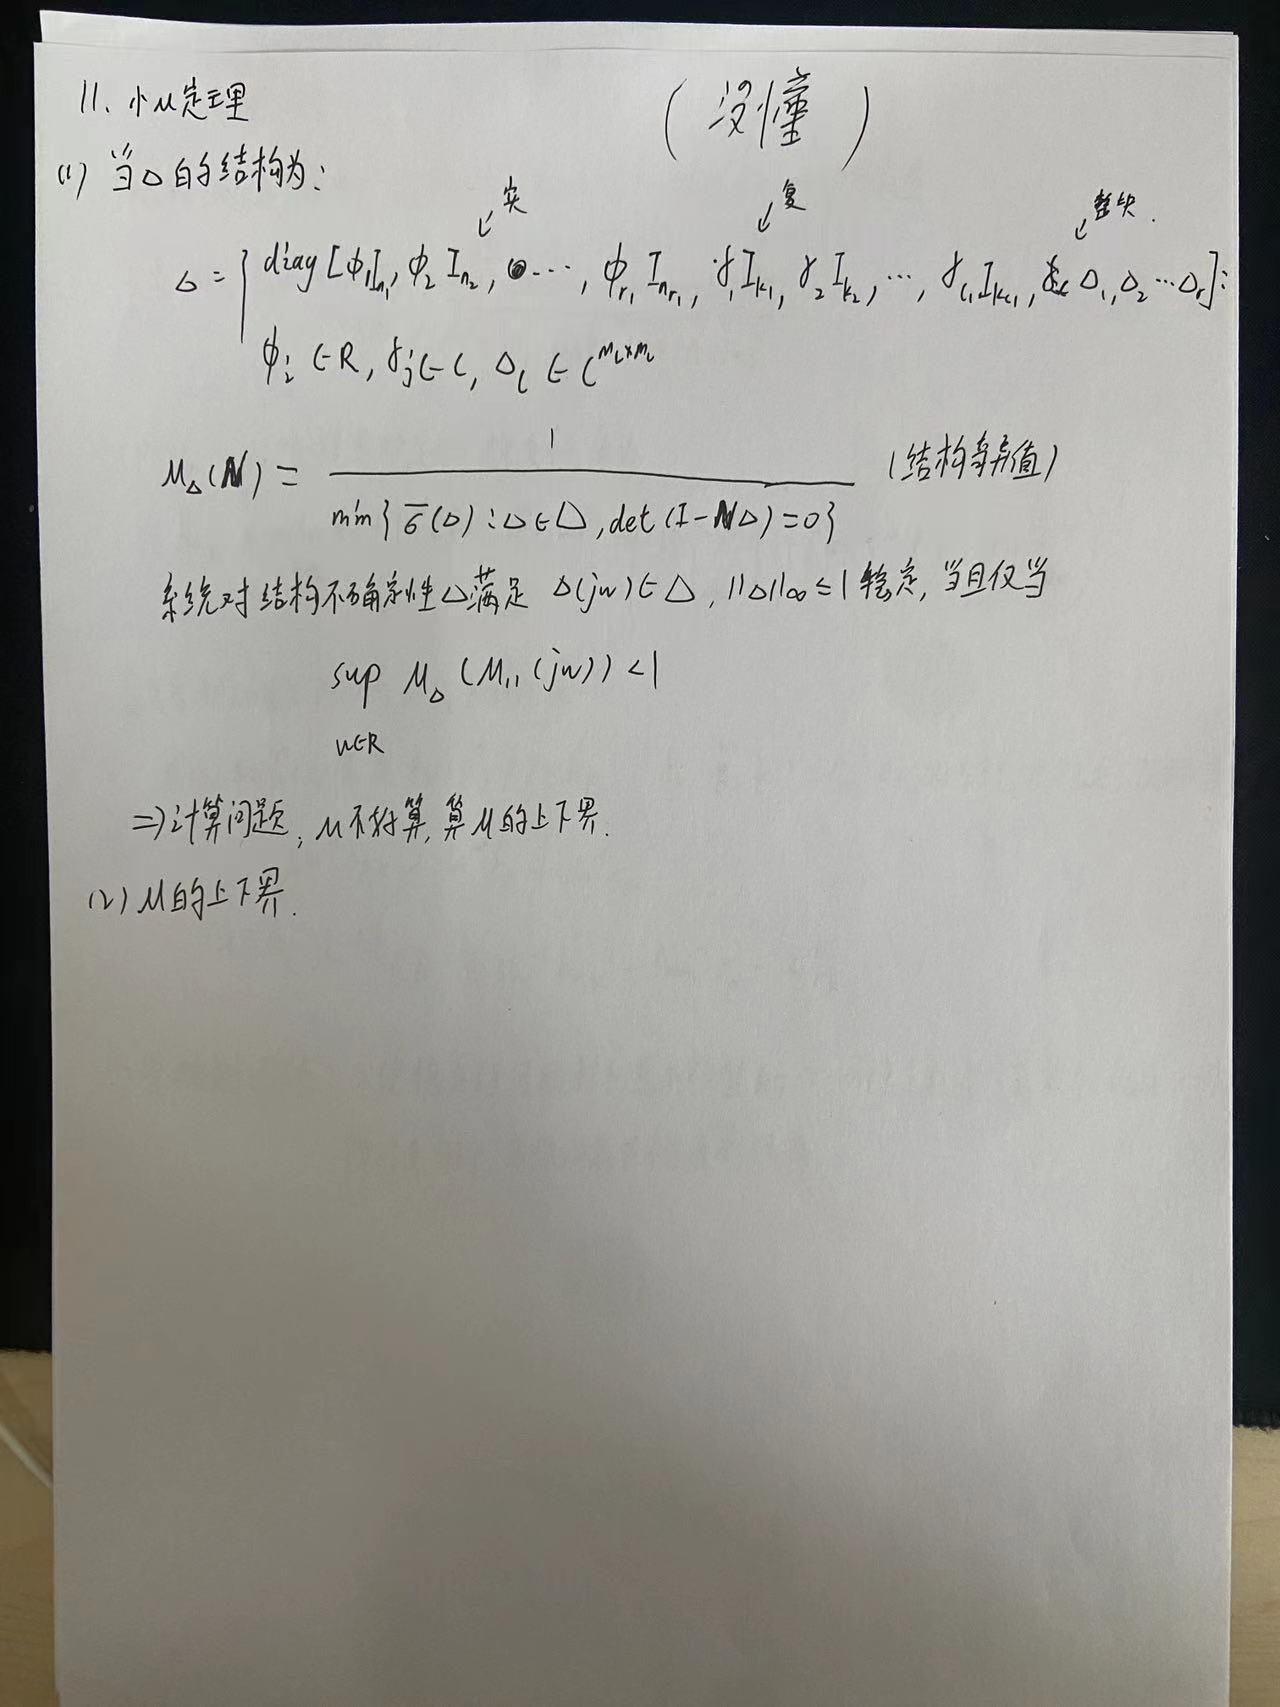 11、小μ定理
(没懂)
(1) 当Δ的结构为:
实
复
整块.
Δ = { diag [ϕ₁Iₙ₁, ϕ₂Iₙ₂, ⋯, ϕᵣ₁Iₙᵣ₁, γ₁Iₖ₁, γ₂Iₖ₂, ⋯, γc₁Ikc₁, Δ₁, Δ₂ ⋯ Δᵣ]:
ϕᵢ ∈ R, γⱼ ∈ C, Δₗ ∈ C^{mₗ×mₗ}
1
μ_Δ(N) = ———— (结构奇异值)
min { σ̄(Δ) : Δ ∈ Δ, det (I - NΔ) = 0 }
系统对结构不确定性Δ满足 Δ(jw) ∈ Δ, ||Δ||∞ ≤ 1 稳定, 当且仅当
sup μ_Δ (M₁₁(jw)) < 1
w∈R
⇒ 计算问题, μ不好算, 算μ的上下界.
(2) μ的上下界.